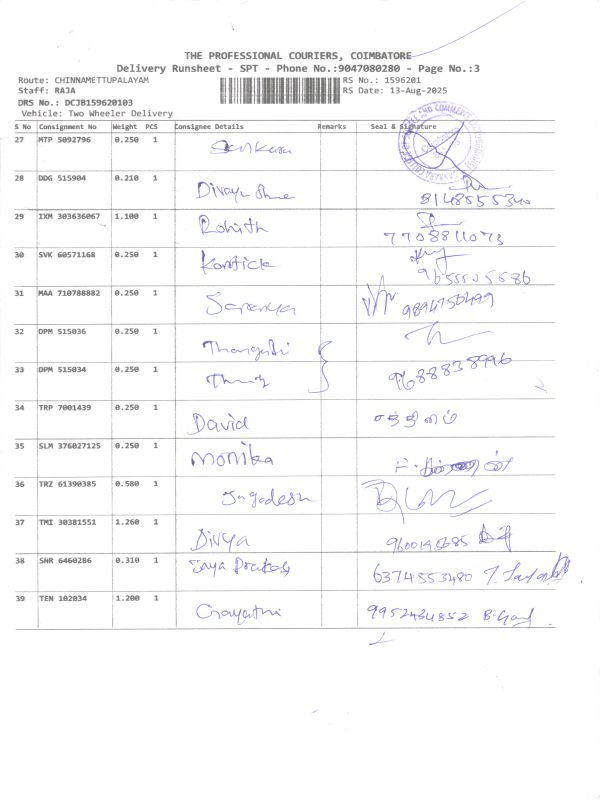 THE PROFESSIONAL COURIERS, COIMBATORE
Delivery Runsheet - SPT - Phone No.:9047080280 - Page No.:3
Route: CHINNAMETTUPALAYAM RS No.: 1596201
Staff: RAJA RS Date: 13-Aug-2025
DRS No.: DCJB159620103
Vehicle: Two Wheeler Delivery
S No Consignment No Weight PCS Consignee Details Remarks Seal & Signature
27 MTP 5092796 0.250 1 Sankara
28 DDG 515904 0.210 1 Divaya 8148555340
29 IXM 303636067 1.100 1 Rohith 7708811073
30 SVK 60571168 0.250 1 Kartick
31 MAA 710788882 0.250 1 Saranya 9894756499
32 DPM 515036 0.250 1
33 DPM 515034 0.250 1 9688838996
34 TRP 7001439 0.250 1 David
35 SLM 376027125 0.250 1 Monika
36 TRZ 61390385 0.580 1 Jagadesh
37 TMI 30381551 1.260 1 Divya 9600195685
38 SNR 6460286 0.310 1 Jaya 6374553480
39 TEN 102034 1.200 1 Gayathri 9952434852